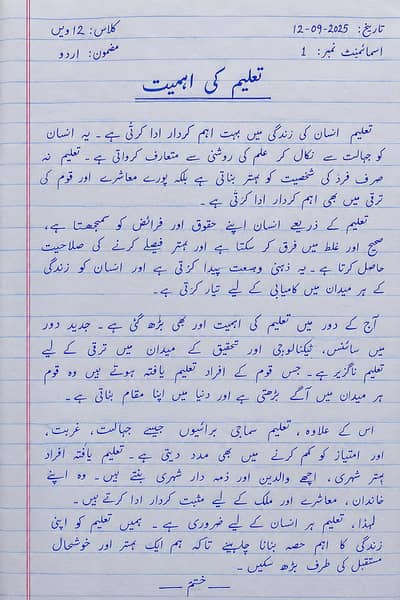 تاریخ: 12-09-2025
کلاس: 12ویں
اسائمنٹ نمبر: 1
مضمون: اردو
تعلیم کی اہمیت
تعلیم انسان کی زندگی میں بہت اہم کردار ادا کرتی ہے۔ یہ انسان
کو جہالت سے نکال کر علم کی روشنی سے متعارف کرواتی ہے۔ تعلیم نہ
صرف فرد کی شخصیت کو بہتر بناتی ہے بلکہ پورے معاشرے اور قوم کی
ترقی میں بھی اہم کردار ادا کرتی ہے۔
تعلیم کے ذریعے انسان اپنے حقوق اور فرائض کو سمجھتا ہے،
صحیح اور غلط میں فرق کر سکتا ہے اور بہتر فیصلے کرنے کی صلاحیت
حاصل کرتا ہے۔ یہ ذہنی وسعت پیدا کرتی ہے اور انسان کو زندگی
کے ہر میدان میں کامیابی کے لیے تیار کرتی ہے۔
آج کے دور میں تعلیم کی اہمیت اور بھی بڑھ گئی ہے۔ جدید دور
میں سائنس، ٹیکنالوجی اور تحقیق کے میدان میں ترقی کے لیے
تعلیم ناگزیر ہے۔ جس قوم کے افراد تعلیم یافتہ ہوتے ہیں وہ قوم
ہر میدان میں آگے بڑھتی ہے اور دنیا میں اپنا مقام بناتی ہے۔
اس کے علاوہ، تعلیم سماجی برائیوں جیسے جہالت، غربت،
اور امتیاز کو کم کرنے میں بھی مدد دیتی ہے۔ تعلیم یافتہ افراد
بہتر شہری، اچھے والدین اور ذمہ دار شہری بنتے ہیں۔ وہ اپنے
خاندان، معاشرے اور ملک کے لیے مثبت کردار ادا کرتے ہیں۔
لہٰذا، تعلیم ہر انسان کے لیے ضروری ہے۔ ہمیں تعلیم کو اپنی
زندگی کا اہم حصہ بنانا چاہیئے تاکہ ہم ایک بہتر اور خوشحال
مستقبل کی طرف بڑھ سکیں۔
— ختم —